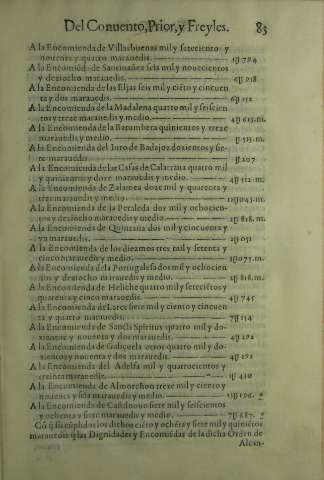 Del Conuento, Prior, y Freyles. 83
A la Encomienda de Villasbuenas mil y setecientos y
nouenta y quatro marauedis.
A la Encomiēda de Santiuañez seis mil y nouecientos
y desiocho marauedis.
A la Encomienda de las Eljas seis mil y ciēto y cincuen
ta y dos marauedis. 6U152
A la Encomienda de la Madalena quatro mil y seiscien
tos y treze marauedis y medio. 4U613.m.
A la Encomienda de la Batundera quinientos y treze
marauedis y medio. U513.m.
A la Encomienda del Iuro de Badajoz dozientos y sie-
te marauedis U207
A la Encomienda de las Casas de Calatraua quatro mil
y quinientos y doze marauedis y medio. 4U512.m.
A la Encomienda de Zalamea doze mil y quarenta y
tres marauedis y medio. 12U043.m.
A la Encomienda de la Peraleda dos mil y ochocien-
tos y desiocho marauedis y medio. 2U818.m.
A la Encomienda de Quintana dos mil y cincuenta y
vn marauedis. 2U051
A la Encomienda de los diezmos tres mil y setenta y
cinco marauedis y medio. 3U075.m.
A la Encomienda de la Portugalesa dos mil y ochocien
tos y desiocho marauedis y medio. 2U818.m.
A la Encomienda de Heliche quatro mil y setecietos y
quarenta y cinco marauedis. 4U745
A la Encomienda de Lares siete mil y ciento y cincuen
ta y quatro marauedis. 7U154
A la Encomienda de Sancti Spiritus quatro mil y do-
zientos y nouenta y dos marauedis. 4U292
A la Encomienda de quatro mil y do-
zientos y nouenta y dos marauedis. 4U292
A la Encomienda del Adelfa mil y quatrocientos y
treinta marauedis. 1U430
A la Encomienda de Almorchon treze mil y ciento y
nouenta y seis marauedis y medio.
A la Encomienda de Castilnouo siete mil y seiscientos
y ochenta y siete marauedis y medio. 7U687.
Cō q̄ son cūplidos los dichos ciēto y ochēta y siete mil y quiniētos
marauedis q̄ las Dignidades y Encomiēdas de la dicha Orden de
Alcan-